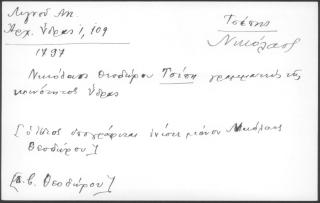 Λιγνοῦ Ἀπ.
Ἀρχ. Ὕδρας 1, 109
Τσέπης
Νικόλαος
1797
Νικόλαος Θεοδώρου Τσέπη γραμματεὺς τῆς
κοινότητος Ὕδρας
[ὁ ἴδιος ὑπογράφεται ἐνίοτε μόνον Νικόλαος
Θεοδώρου]
[π.β. Θεοδώρου]